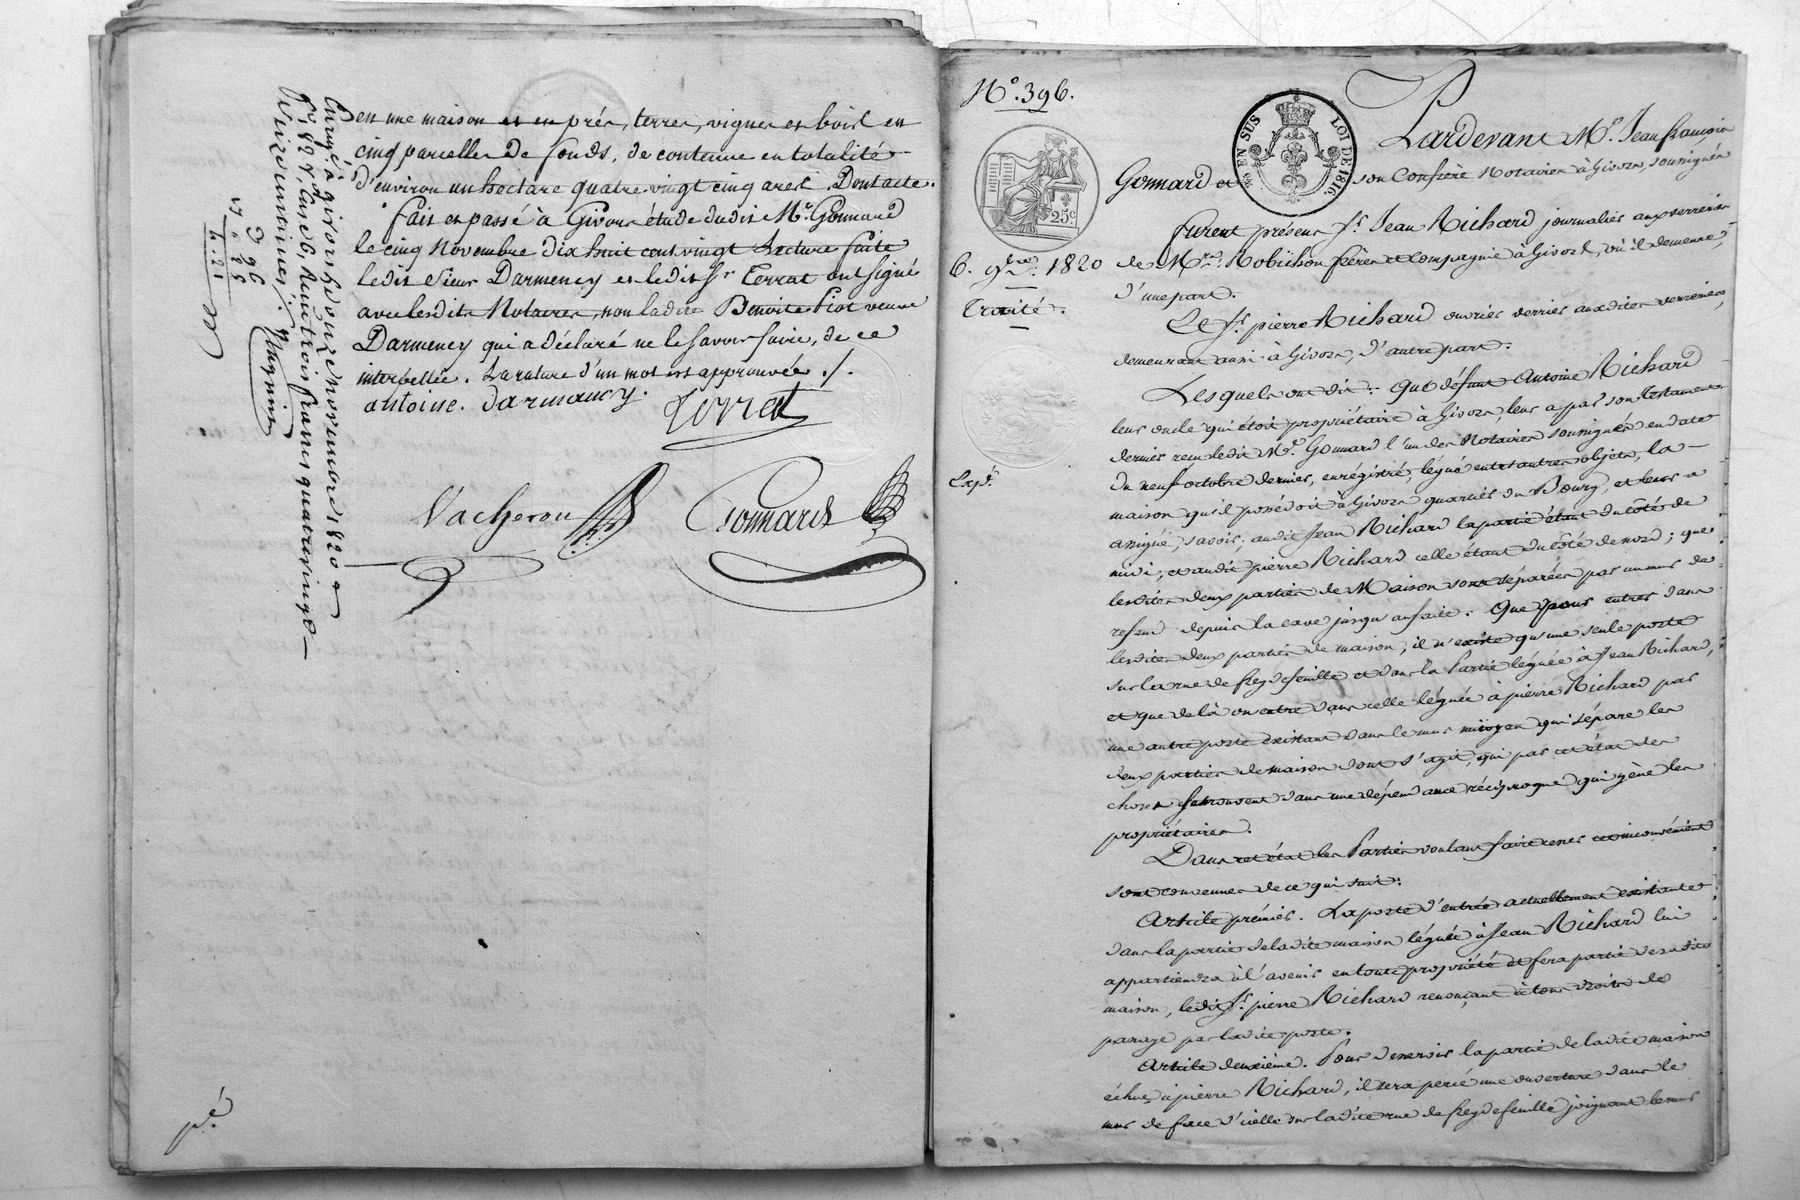 en une maison et en prés, terres, vignes et bois en
cinq parcelles de fonds, de contenue en totalité
d'environ un hectare quatre vingt cinq ares. Dont acte.
fait et passé à Givors étude dudit Me. Gonnard
le cinq Novembre dix huit cent vingt Lecture faite
ledit Sieur Darmency et ledit Sr. Terrat ont signé
avec lesdits Notaires, non ladite Benoite Piot veuve
Darmency qui a déclaré ne le savoir faire, de ce
interpellée. La rature d'un mot est approuvée ./.
antoine. darmancy.
Terrat
Vacheron
Gonnard
Enregé. à givors le douze novembre 1820
fo. 189 vo. Case 6, Reçu trois francs quatre vingt
Seize centimes ./.
3 96
4..
pé.
No. 396.
EN SUS LOI DE 1816
25c
6. 9bre. 1820
Traité.
Expé.
Pardevant Me. Jean françois
Gonnard et son Confrère Notaires à Givors, soussignés
furent présens Sr. Jean Richard journalier aux verreries
de Mrs. Robichon frères et compagnie à Givors, où il demeure,
d'une part.
Et Sr. pierre Richard ouvrier verrier auxdites verreries
demeurant aussi à Givors, d'autre part.
Lesquels ont dit: Que défunt Antoine Richard
leur oncle qui étoit propriétaire à Givors, leur a par son testament
dernier reçu ledit Me. Gonnard l'un des Notaires soussignés en date
du neuf octobre dernier, enrégistré, légué entr'autres objets, la
maison qu'il possédoit à Givors quartier du Bourg, et leur a
assigné, savoir; audit Jean Richard la partie étant du côté de
midi, et audit pierre Richard celle étant du côté de nord; que
lesdites deux parties de Maison sont séparées par un mur de
refend depuis la cave jusqu'au faîte: Que pour entrer dans
lesdites deux parties de maison, il n'existe qu'une seule porte
sur la rue de freydefeuille et dans la Partie léguée à Jean Richard,
et que de là on entre dans celle léguée à pierre Richard par
une autre porte existant dans le mur mitoyen qui sépare les
deux parties de maison dont s'agit, qui par cet état des
choses se trouvent dans une dépendance réciproque qui gêne les
propriétaires.
Dans cet état les Parties voulant faire cesser ces inconvénient
sont convenues de ce qui suit:
Article prémier. La porte d'entrée actuellement existante
dans la partie de ladite maison léguée à Jean Richard lui
appartiendra à l'avenir en toute propriété et fera partie de sadite
maison, ledit Sr. pierre Richard renonçant à tous droits de
passage par ladite porte.
Article deuxième. Pour desservir la partie de ladite maison
échue à pierre Richard, il sera percé une ouverture dans le
mur de face d'icelle sur ladite rue de freydefeuille joignant le mur